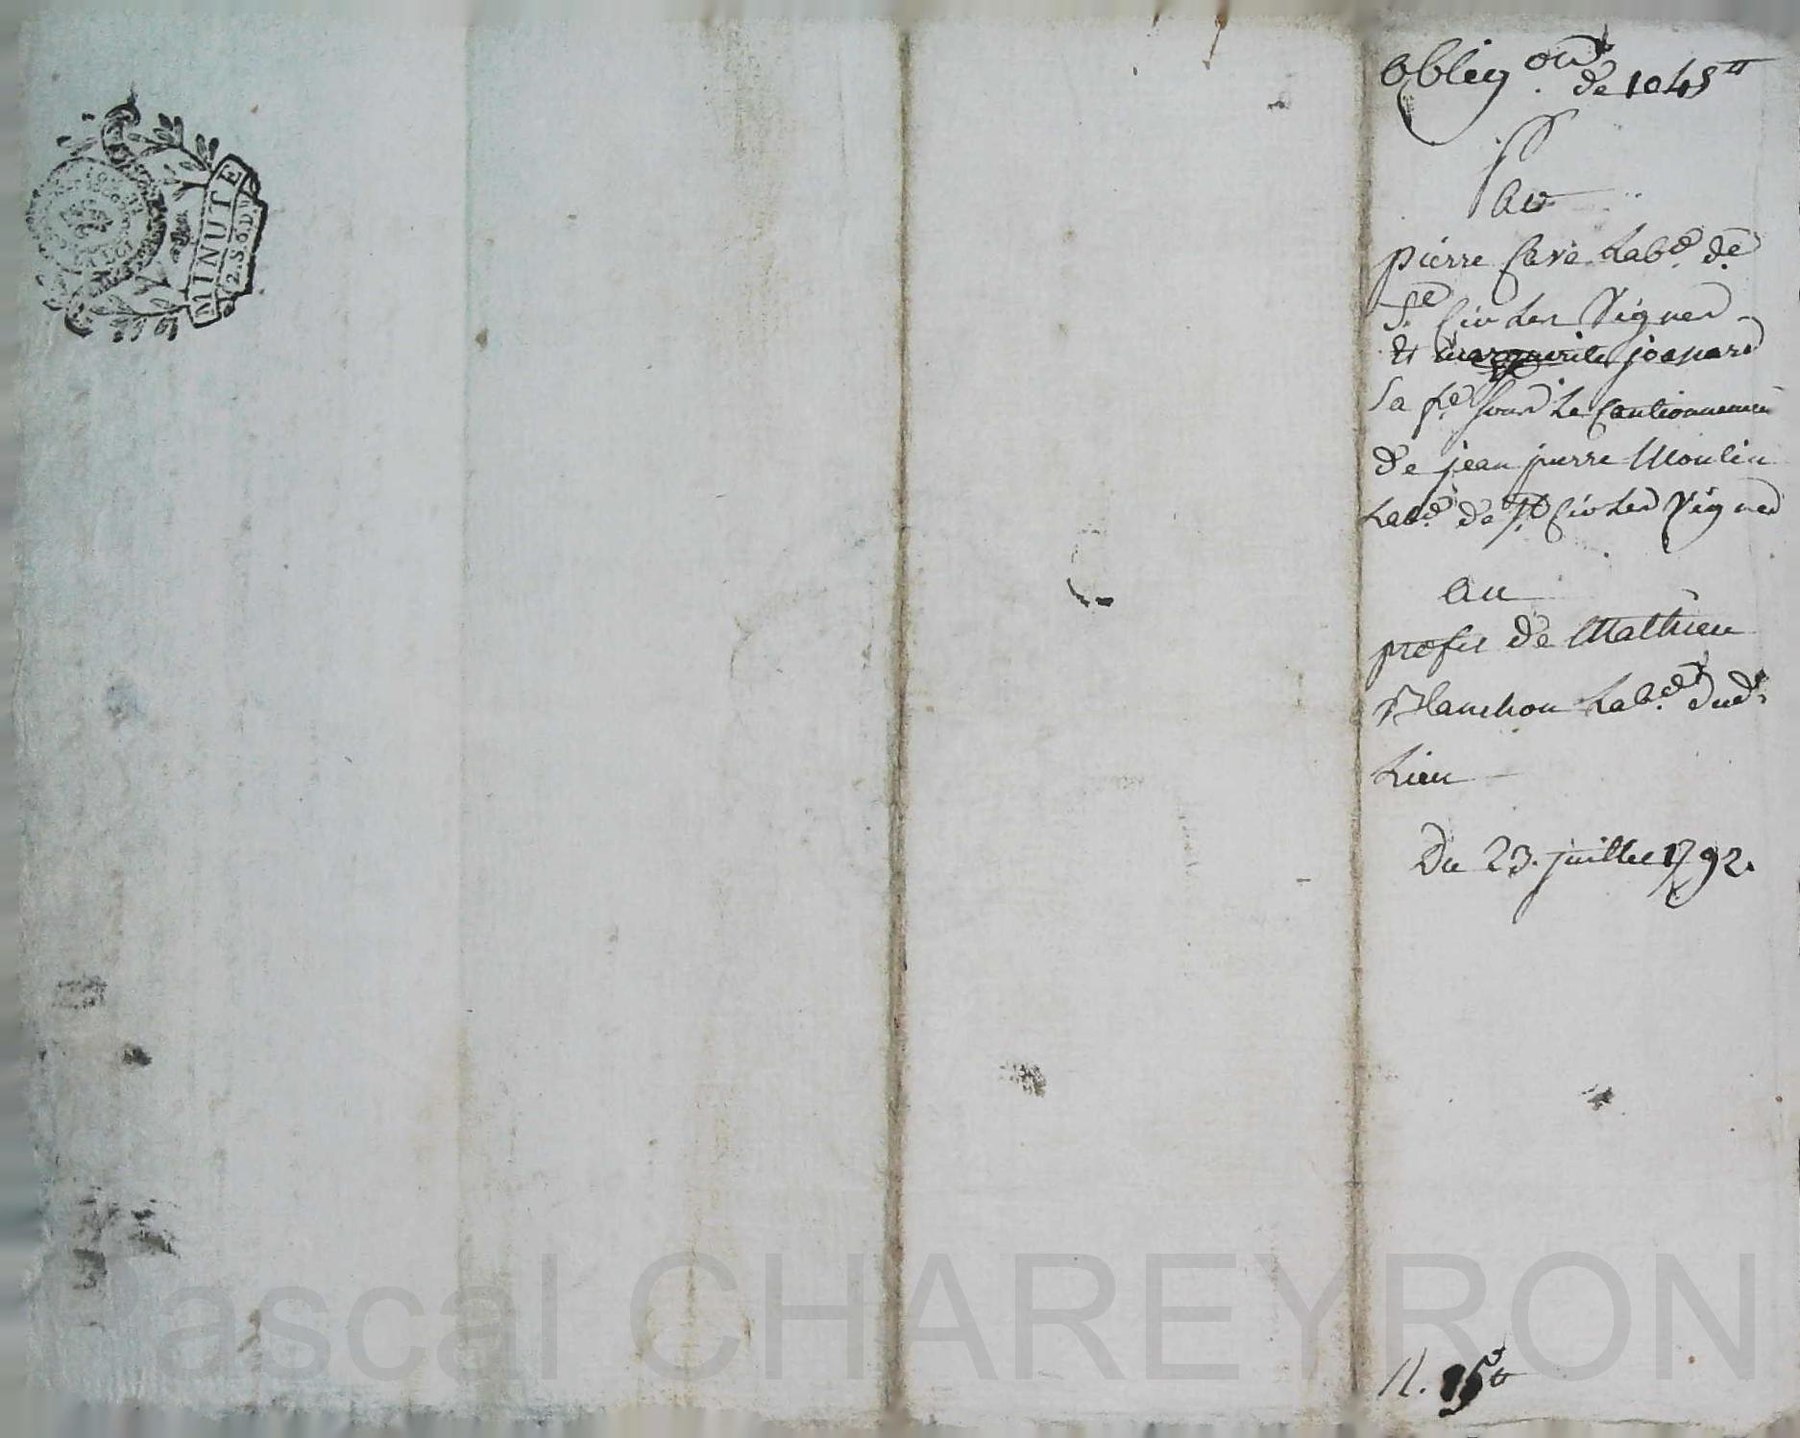 MINUTE
2.S.6.D.
obligon. de 1045 tt
pierre labr. de
St. Cir les Vignes
et marguerite joanard
Sa fe. sous le Cautionnement
de jean pierre Moulin
labr. de St Cir les Vignes
au
profit de Mathieu
Blanchon labr. dudt
Lieu
Du 23. juillet 1792.
Pascal CHAREYRON